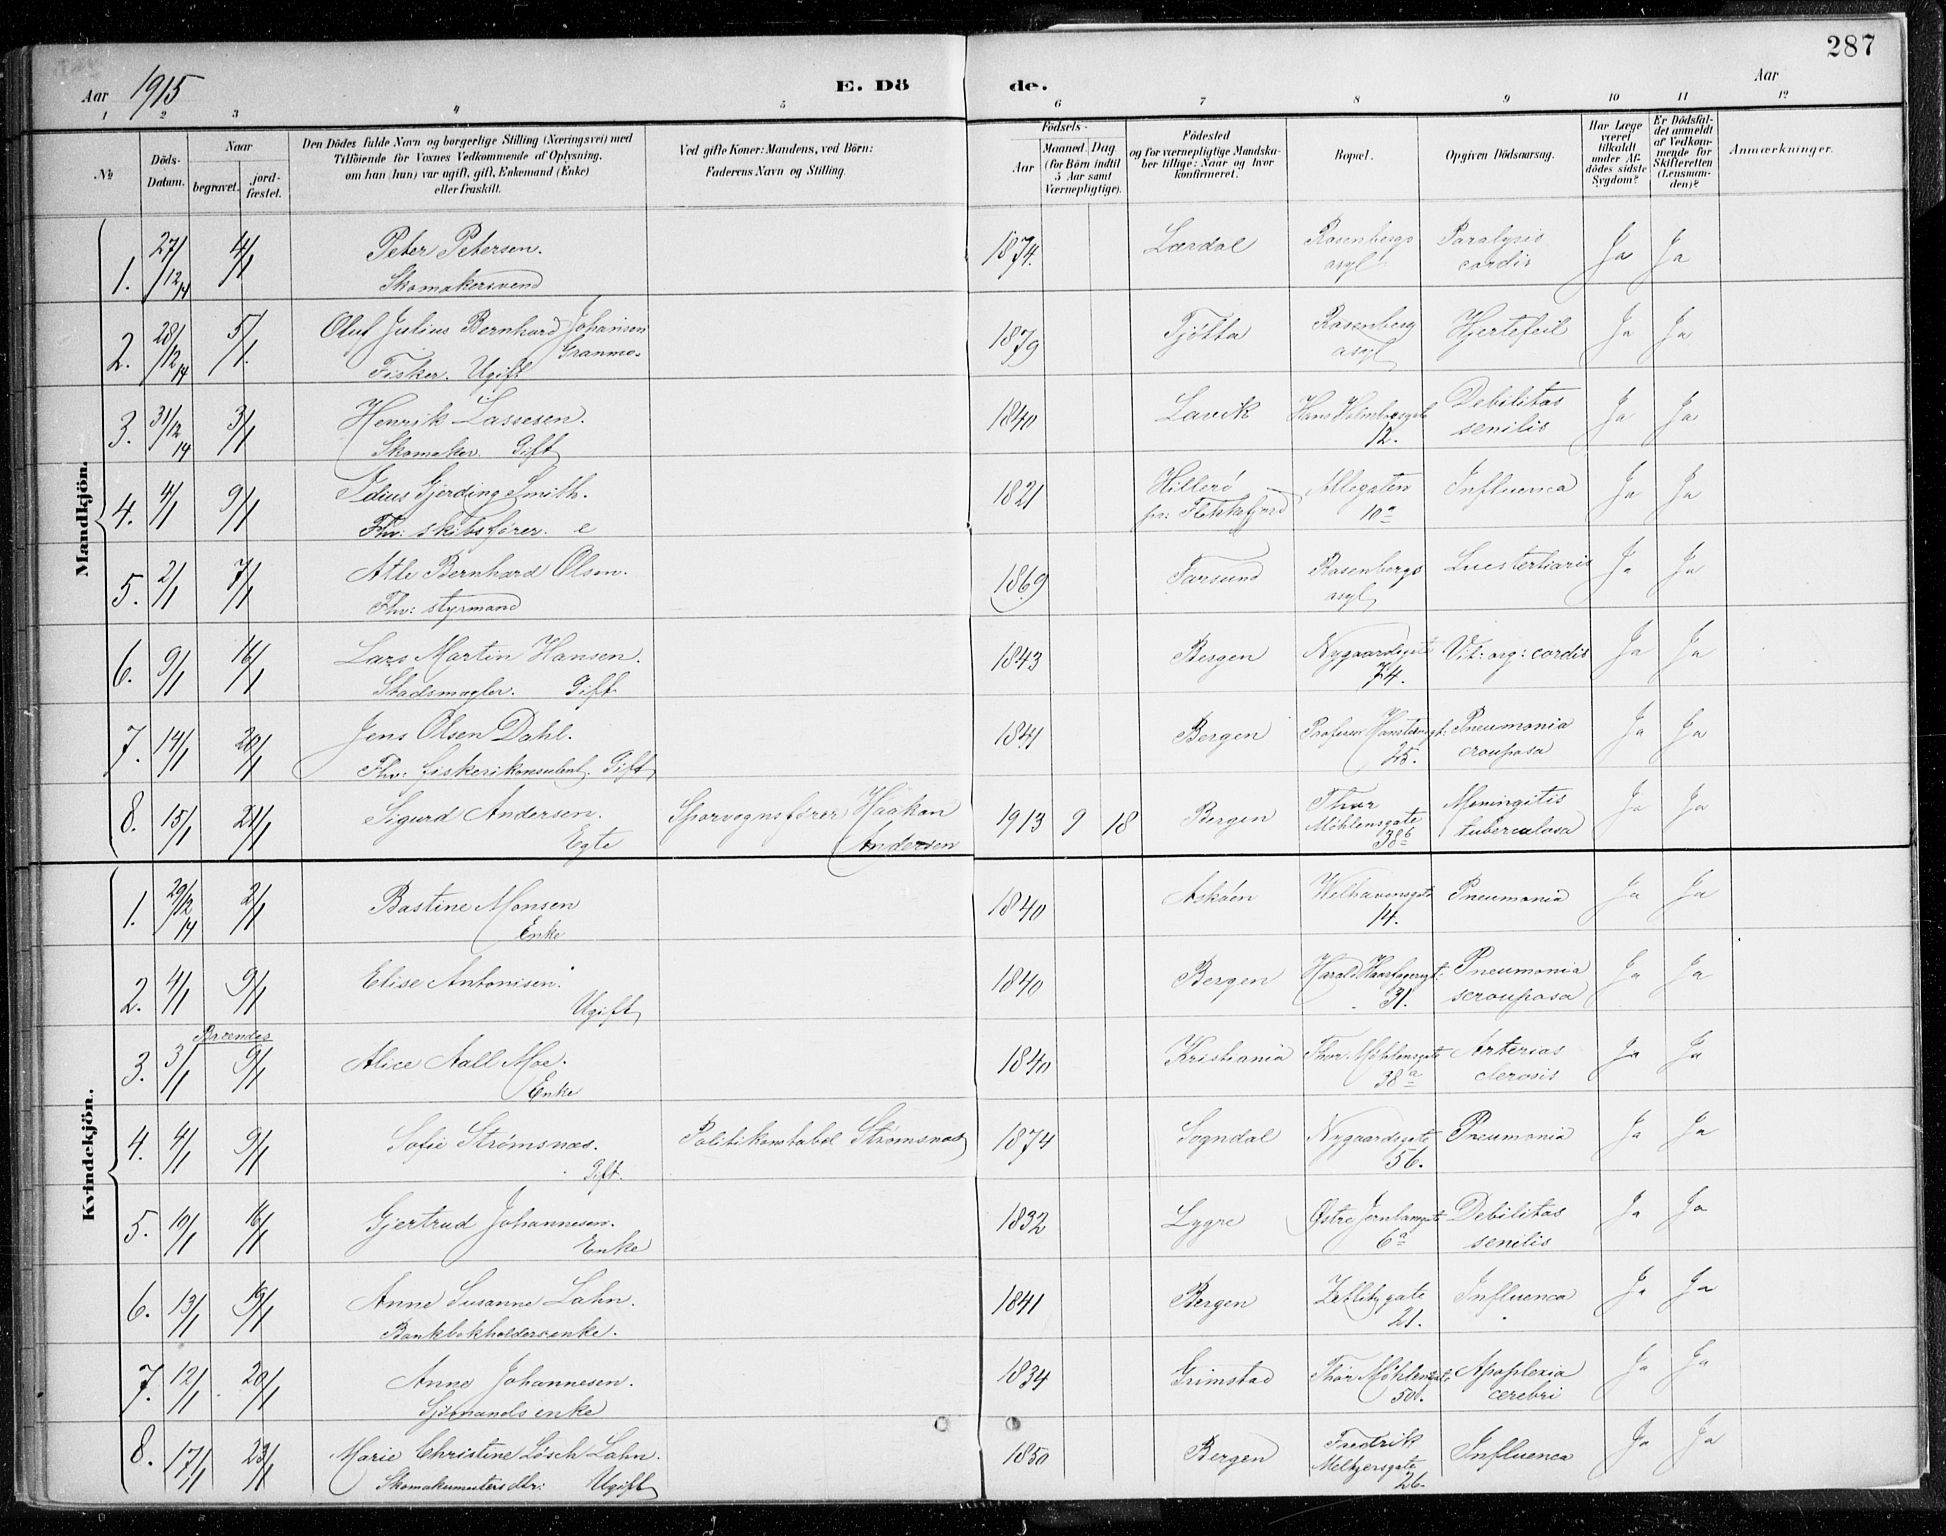 287
Aar 1915 E. Dö de. Aar
1 2 3 4 5 6 7 8 9 10 11 12
№
Döds-Datum.
Naar
begravet. jord-fæstet.
Den Dödes fulde Navn og borgerlige Stilling (Næringsvei) med
Tilföiende for Voxnes Vedkommende af Oplysning,
om han (hun) var ugift, gift, Enkemand (Enke)
eller fraskilt.
Ved gifte Koner: Mandens, ved Börn:
Faderens Navn og Stilling.
Födsels-
Aar
Maaned. Dag.
(for Börn indtil
5 Aar samt
Værnepligtige).
Födested
og for værnepligtige Mandska-
ber tillige: Naar og hvor
konfirmeret.
Bopæl.
Opgiven Dödsaarsag.
Har Læge
været
tilkaldt
under Af-
dödes sidste
Sygdom?
Er Dödsfal-
det anmeldt
af Vedkom-
mende for
Skifteretten
(Lensman-
den)?
Anmærkninger.
Mandkjön.
1. 27/12 14 4/1 Peter Petersen. 1874. Lærdal Rosenbergs Paralysis Ja Ja
Skomakersvend asyl cordis
2. 28/12 14 5/1. Oluf Julius Bernhard Johansen 1879 Tjötta Rosenberg Hjertefeil Ja Ja
Granmo.
Fisker. Ugift asyl
3. 31/12 14 3/1 Henrik Lassesen. 1840 Lavik Hans Holmboesgate Debilitas Ja Ja
Skomaker. Gift 12. senilis
4. 4/1 9/1 Gjerding Smith. 1821 Hillerö Allegaten Influenca Ja Ja
Fhv: skibsfører. e pr: Flekkefjord 10a
5. 2/1 7/1 Atle Bernhard Olsen. 1869 Farsund Rosenbergs Lues tertiaris Ja Ja
Fhv: styrmand asyl
6. 9/1 16/1 Lars Martin Hansen. 1843 Bergen Nygaardsgate Vit: org: cordis Ja Ja
Stadsmægler. Gift 74.
7. 14/1 20/1 Jens Olsen Dahl. 1841 Bergen Professor Hansteensgt: Pneumonia Ja Ja
Fhv: fiskerikonsulent. Gift 25. crouposa
8. 15/1 21/1 Sigurd Andersen. Sporvognsfører Haakon 1913 9 18 Bergen Thor Meningitis Ja Ja
Egte Andersen Möhlensgate tuberculosa
38b
Kvindekjön.
1. 29/12 14 2/1 Bastine Monsen 1840 Asköen Welhavensgate Pneumonia Ja Ja
Enke 14.
2. 4/1 9/1 Elise Antonisen. 1840 Bergen Harald Haarfagersgt: Pneumonia Ja Ja
Ugift 31. scrouposa
3. 3/1 9/1 Alice Aall Moe. 1840 Kristiania Thor Möhlensgate Arterios Ja Ja
Enke 38a clerosis
4. 4/1 9/1 Sofie Strømsnæs. Politikonstabel Strømsnæs 1874 Sogndal Nygaardsgate Pneumonia Ja Ja
Gift. 56.
5. 10/1 16/1 Gjertrud Johannesen. 1832 Lygre Østre Debilitas Ja Ja
Enke 6a senilis
6. 13/1 19/1 Anne Susanne Lahn. 1841 Bergen Zetlitzgate Influenca Ja Ja
Bankbokholdersenke. 21.
7. 12/1 20/1 Anne Johannesen. 1834 Grimstad Thor Möhlensgate Apoplexia Ja Ja
Sjömands enke 50. cerebri
8. 17/1 23/1 Marie Christine Løsch Lahn. 1850 Bergen Fredrik Influenca Ja Ja
Skomakermesters dtr: Ugift Meltzersgate
26.